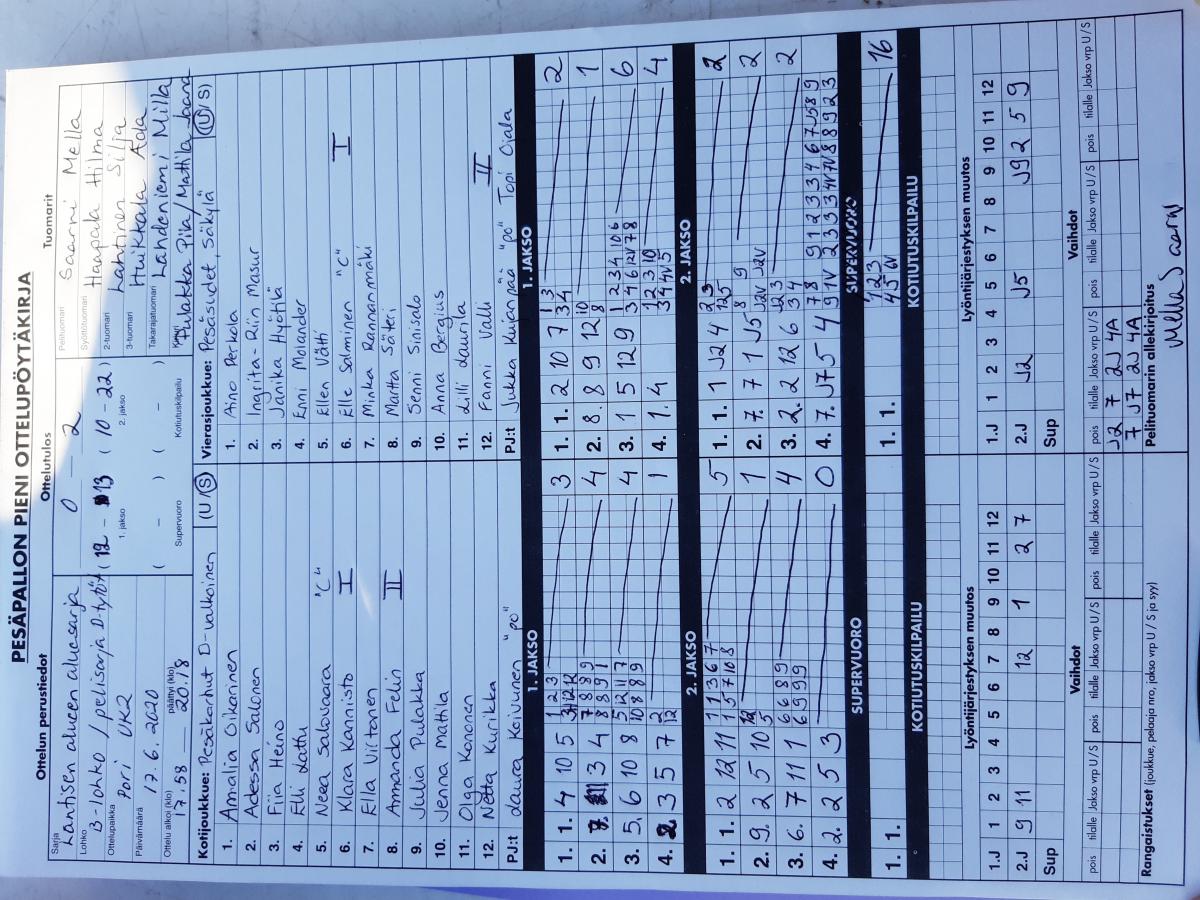 PESÄPALLON PIENI OTTELUPÖYTÄKIRJA
Ottelun perustiedot
Sarja
Läntisen alueen aluesarja
Lohko
B-lohko / pelisarja D-tytöt
Ottelupaikka
Pori UK2
Päivämäärä
17.6.2020
Ottelu alkoi (klo) päättyi (klo)
17.58 — 20.18
Ottelutulos
0 — 2
(12 - 13) (10 - 22)
1. jakso 2. jakso
( - ) ( - )
Supervuoro Kotiutuskilpailu
Tuomarit
Pelituomari Saarni Mella
Syöttötuomari Haapala Hilma
2-tuomari Lahtinen Silja
3-tuomari Huikkala Ada
Takarajatuomari Lahdeniemi Milla
Kirjuri Pulakka Pila/Mattila Jaana
Kotijoukkue: Pesäkarhut D-valkoinen (U/S)
1. Amalia Oikarinen
2. Adessa Salonen
3. Fiia Heino
4. Elli Lattu
5. Neea Salovaara "C"
6. Klara Kannisto I
7. Ella Virtanen
8. Amanda Felin II
9. Julia Pulakka
10. Jenna Mattila
11. Olga Kanonen
12. Netta Kurikka
PJ:t Laura Koivunen "po"
Vierasjoukkue: Pesäsudet, Säkylä (U/S)
1. Aino Perkola
2. Ingrita-Riin Masur
3. Janika Hyötilä
4. Enni Molander
5. Ellen Vätti
6. Elle Salminen "C" I
7. Minka Rannanmäki
8. Martta Säteri
9. Senni Sinisalo
10. Anna Bergius
11. Lilli Laurila
12. Fanni Valli II
PJ:t Jukka Kujanpää "po" Topi Ojala
1. JAKSO
1. 1. 4 10 5 3
2. 3 4 4
3. 5. 6 10 8 4
4. 3 5 7 1
1. JAKSO
1. 1. 2 10 7 2
2. 8. 8 9 12 1
3. 1 5 12 9 6
4. 1. 4 4
2. JAKSO
1. 1. 2 12 11 5
2. 9. 2 5 10 1
3. 6. 7 11 1 4
4. 2. 2 5 3 0
2. JAKSO
1. 1. 1 J2 4 2
2. 7. 7 1 J5 2
3. 2. 2 12 6 2
4. 7. J7 5 4
SUPERVUORO
1. 1.
SUPERVUORO
1. 1. 16
KOTIUTUSKILPAILU
KOTIUTUSKILPAILU
Lyöntijärjestyksen muutos
1.J 1 2 3 4 5 6 7 8 9 10 11 12
2.J 9 11 12 1 2 7
Sup
Lyöntijärjestyksen muutos
1.J 1 2 3 4 5 6 7 8 9 10 11 12
2.J J2 J5 J9 2 5 9
Sup
Vaihdot
pois tilalle Jakso vrp U/S pois tilalle Jakso vrp U/S pois tilalle Jakso vrp U/S
Vaihdot
pois tilalle Jakso vrp U/S pois tilalle Jakso vrp U/S pois tilalle Jakso vrp U/S
J2 7 2J 4A
7 J7 2J 4A
Rangaistukset (joukkue, pelaaja nro, jakso vrp U / S ja syy)
Pelituomarin allekirjoitus
Mella Saarni